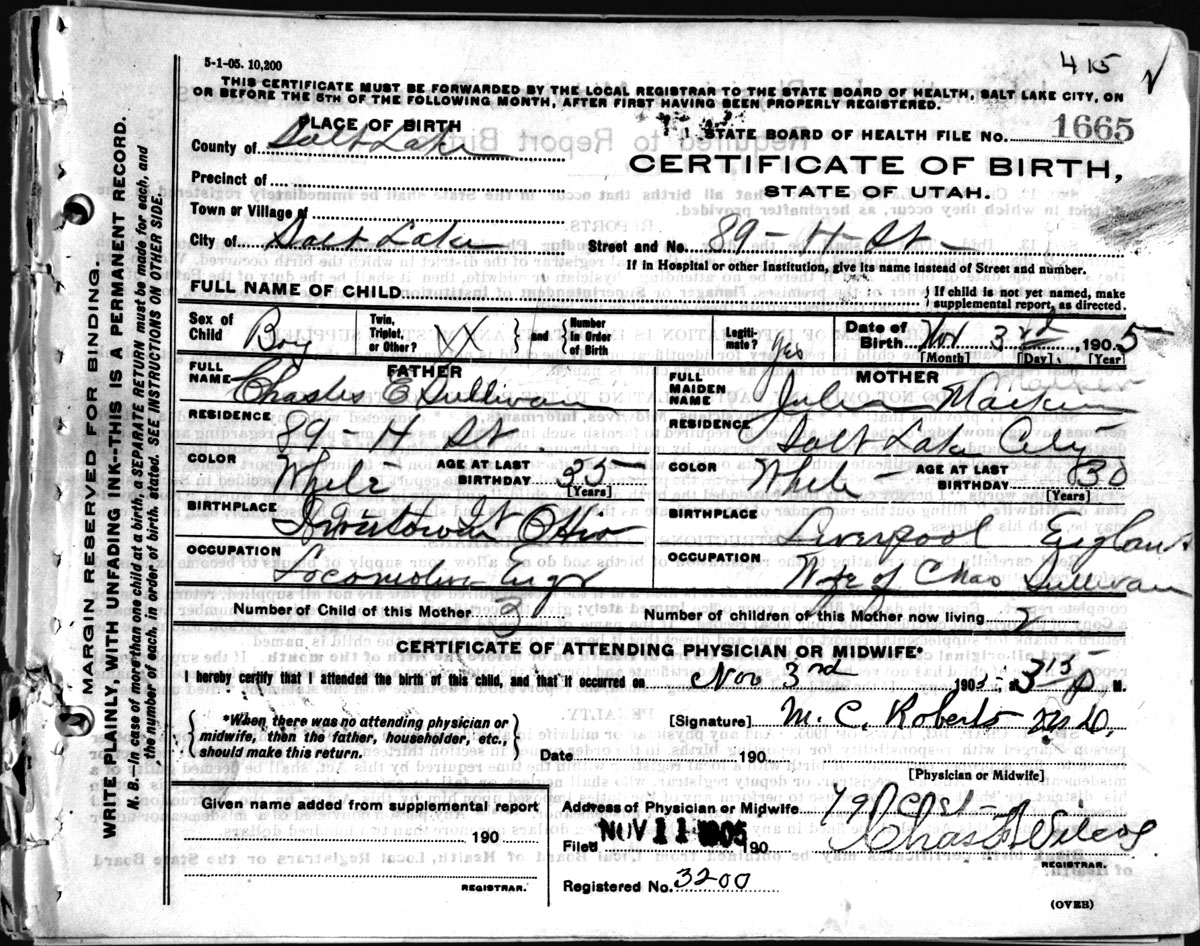 415
5-1-05. 10,200
THIS CERTIFICATE MUST BE FORWARDED BY THE LOCAL REGISTRAR TO THE STATE BOARD OF HEALTH, SALT LAKE CITY, ON
OR BEFORE THE 5TH OF THE FOLLOWING MONTH, AFTER FIRST HAVING BEEN PROPERLY REGISTERED.
MARGIN RESERVED FOR BINDING.
WRITE PLAINLY, WITH UNFADING INK--THIS IS A PERMANENT RECORD.
N. B.--In case of more than one child at a birth, a SEPARATE RETURN must be made for each, and
the number of each, in order of birth, stated. SEE INSTRUCTIONS ON OTHER SIDE.
PLACE OF BIRTH
STATE BOARD OF HEALTH FILE NO. 1665
County of Salt Lake
CERTIFICATE OF BIRTH,
Precinct of
STATE OF UTAH.
Town or Village of
City of Salt Lake Street and No. 89 - H - St -
If in Hospital or other Institution, give its name instead of Street and number.
FULL NAME OF CHILD { If child is not yet named, make
supplemental report, as directed.
Sex of Child Boy Twin, Triplet, or Other? XX and Number in Order of Birth Legiti-mate? yes Date of Birth Nov 3rd 1905
[Month] [Day] [Year]
FATHER MOTHER
FULL NAME Charles E Sullivan FULL MAIDEN NAME Julia
RESIDENCE 89 - H St RESIDENCE Salt Lake City
COLOR White AGE AT LAST BIRTHDAY 35 [Years] COLOR White AGE AT LAST BIRTHDAY 30 [Years]
BIRTHPLACE Ohio BIRTHPLACE Liverpool England
OCCUPATION Locomotive Engr OCCUPATION Wife of Chas Sullivan
Number of Child of this Mother 3 Number of children of this Mother now living 2
CERTIFICATE OF ATTENDING PHYSICIAN OR MIDWIFE*
I hereby certify that I attended the birth of this child, and that it occurred on Nov 3rd 1905, 3 15 P M.
*When there was no attending physician or
midwife, then the father, householder, etc.,
should make this return.
[Signature] M. C. Roberts M.D.
Date 190
[Physician or Midwife]
Given name added from supplemental report
190
REGISTRAR.
Address of Physician or Midwife
Filed NOV 11 1905 190 Chas Wilcox
REGISTRAR.
Registered No. 3200
(OVER)